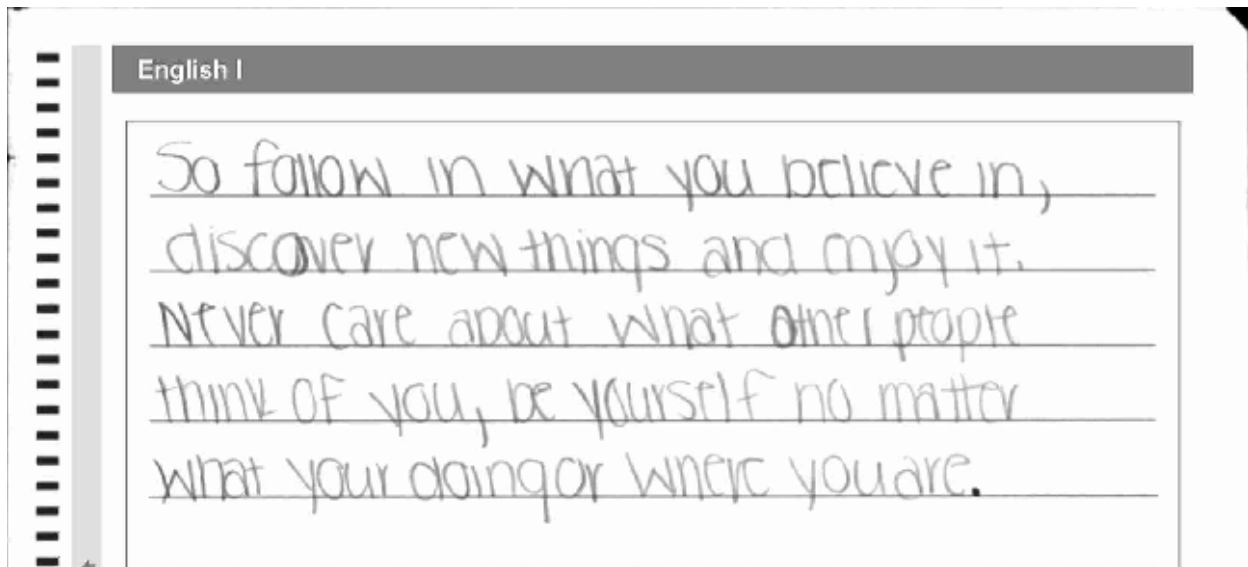 English I
So follow in what you believe in,
discover new things and enjoy it.
Never care about what other people
think of you, be yourself no matter
what your doing or where you are.